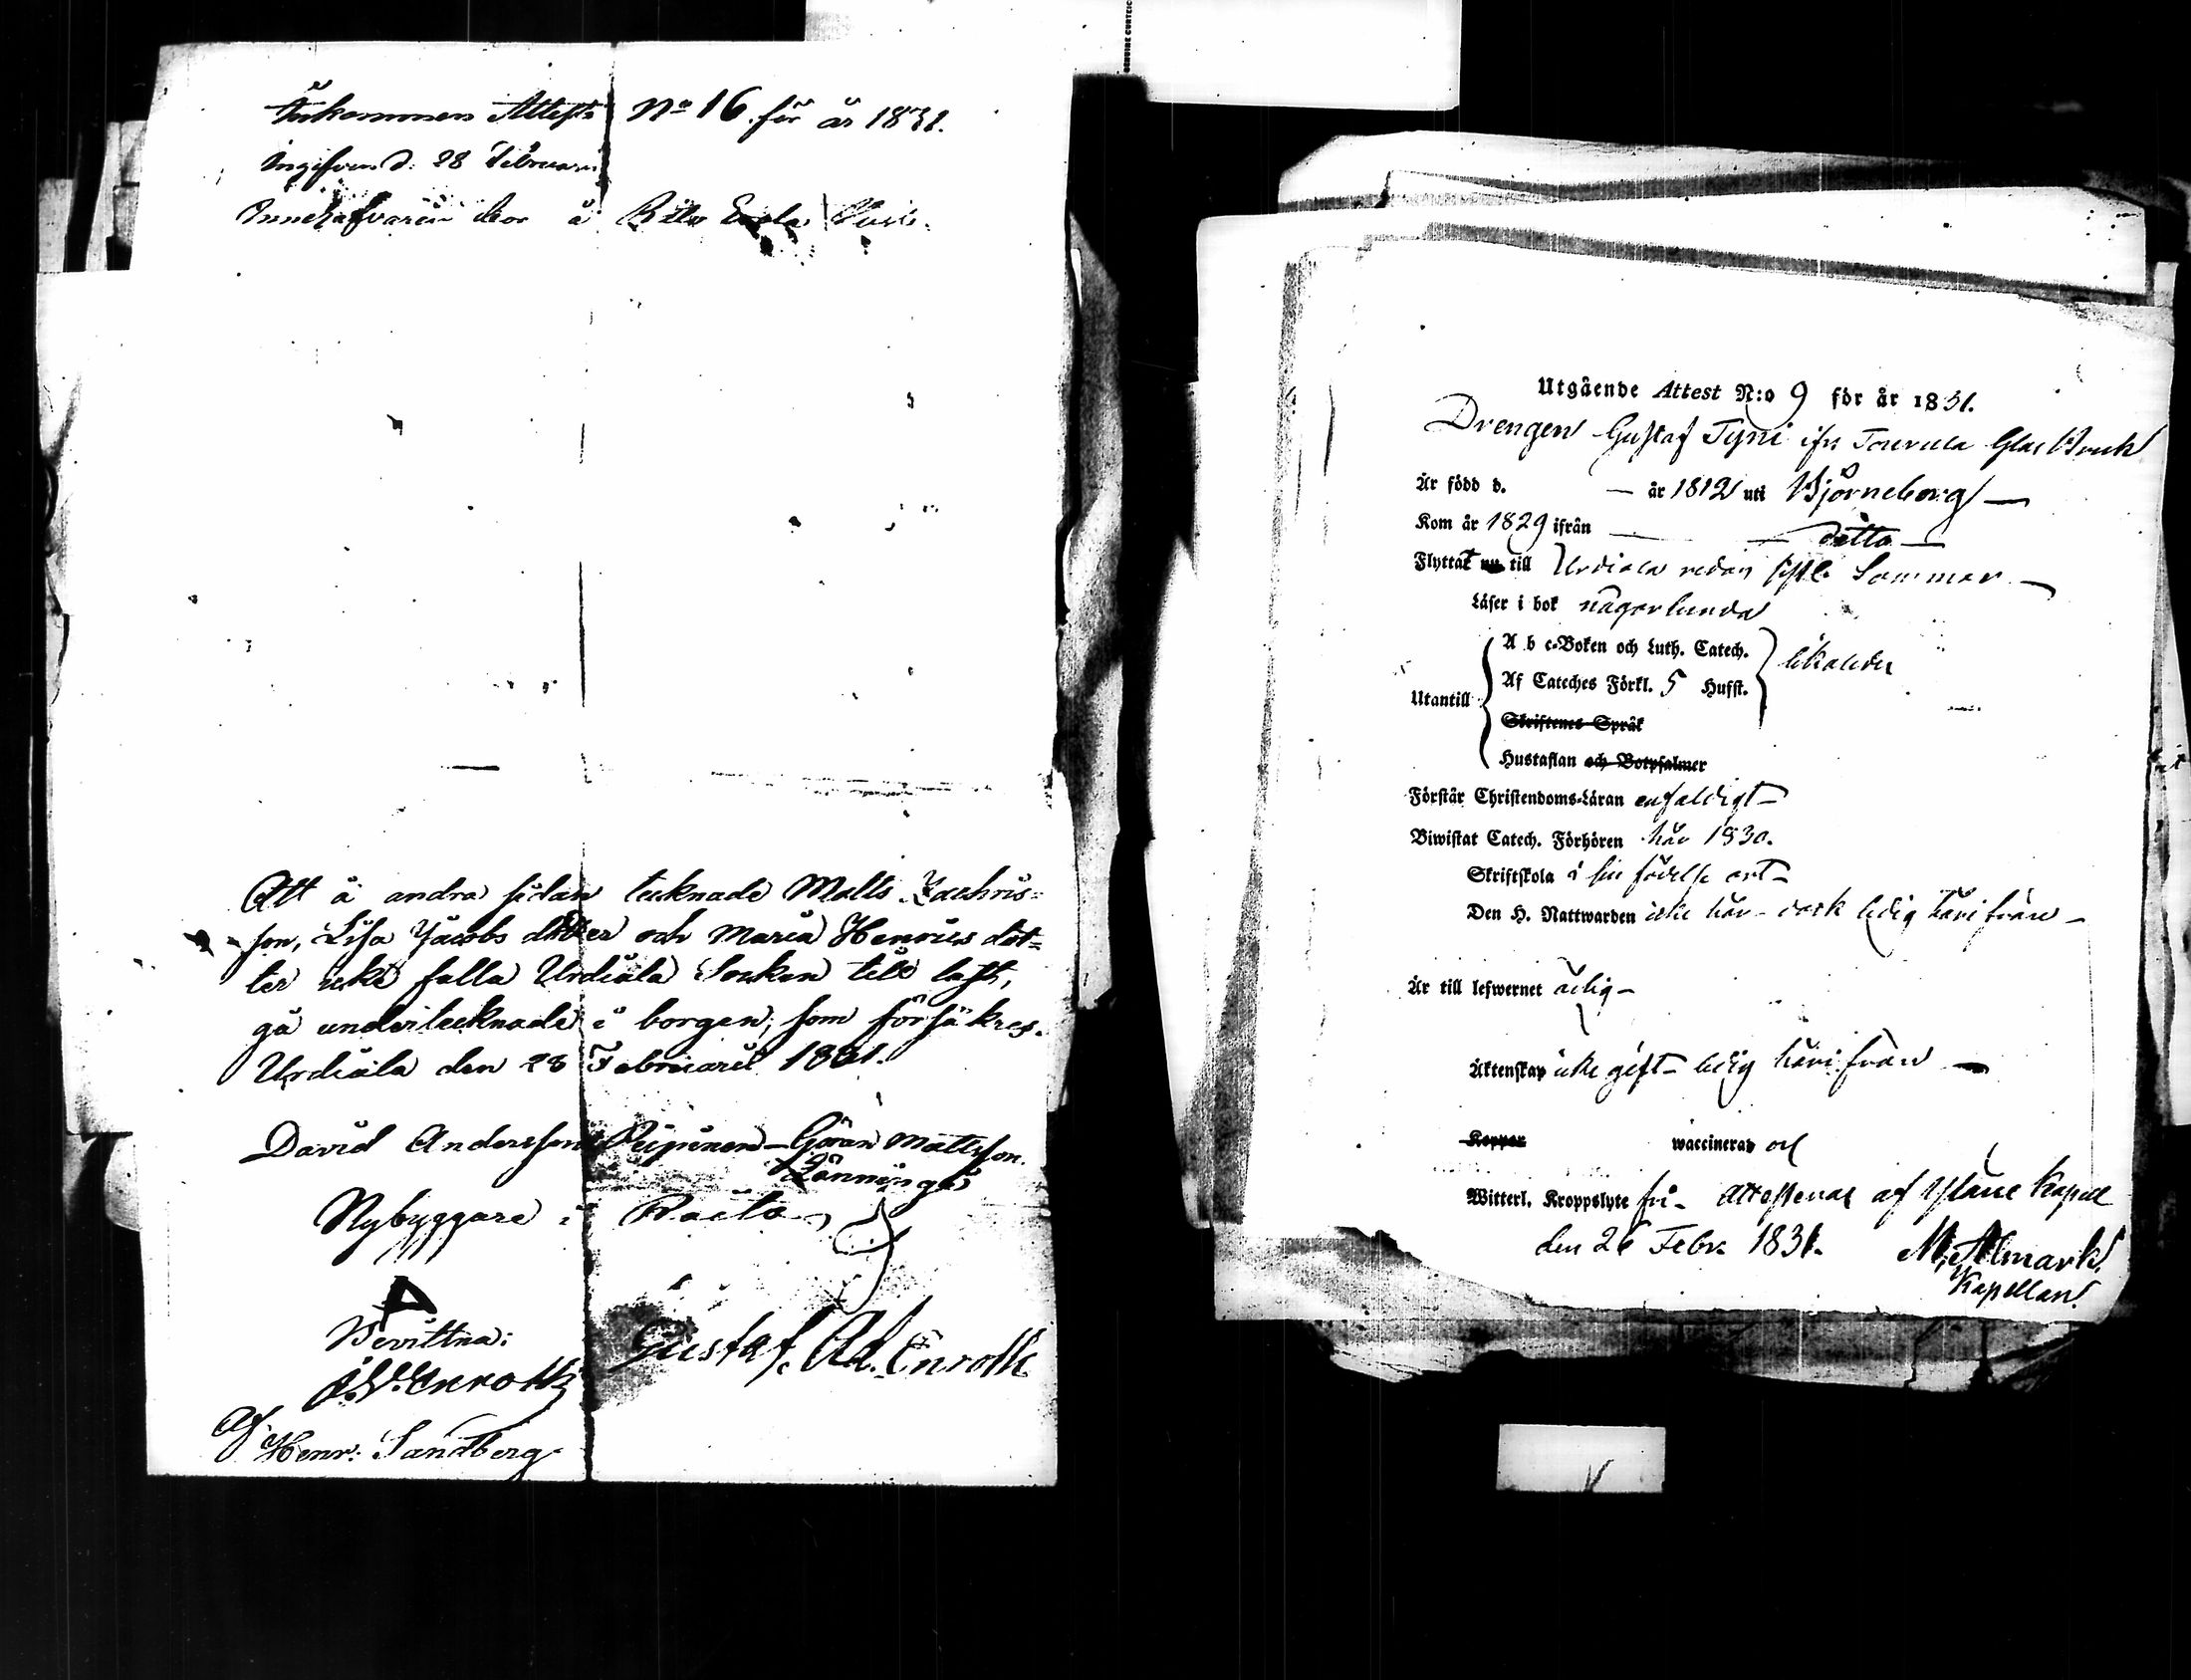 Ankommen Attest No 16. för år 1831.
Ingifven d. 28 Februari
Innehafvaren bor å
Att å andra sidan tecknade Matts Zachris=
son, Lisa Jacobs dotter och Maria Henrics dot=
ter icke falla Urdiala Socken till last,
gå undertecknade i borgen, som försäkres.
Urdiala den 28 Februarii 1831.
David Andersson Göran Mattsson
Nybyggare i
Bevittna:
Gustaf. Ad. Enroth
Af
Henr: Sandberg
Utgående Attest N:o 9 för år 1831.
Drengen Gustaf Tyni ifr. Tourula Glas Bruk
Är född d. — år 1812 uti Björneborg —
Kom år 1829 ifrån — — ditto —
Flyttat till Urdiala redan sistl. Sommar —
Läser i bok någorlunda
A b c-Boken och Luth. Catech.
Af Cateches Förkl. 5 Hufst.
likaledes
Utantill
Skriftenes Språk
Hustaflan och Botpsalmer
Förstår Christendoms-Läran enfaldigt —
Biwistat Catech. Förhören här 1830.
Skriftskola i sin födelse ort —
Den H. Nattwarden icke här — dock ledig härifrån —
Är till lefwernet ärlig —
Äktenskap icke gift — ledig härifrån —
Koppor waccinerad och
Witterl. Kroppslyte fri — Attesteras af Yläne Kapell
den 26 Febr. 1831. M. Almark,
Kapellan.